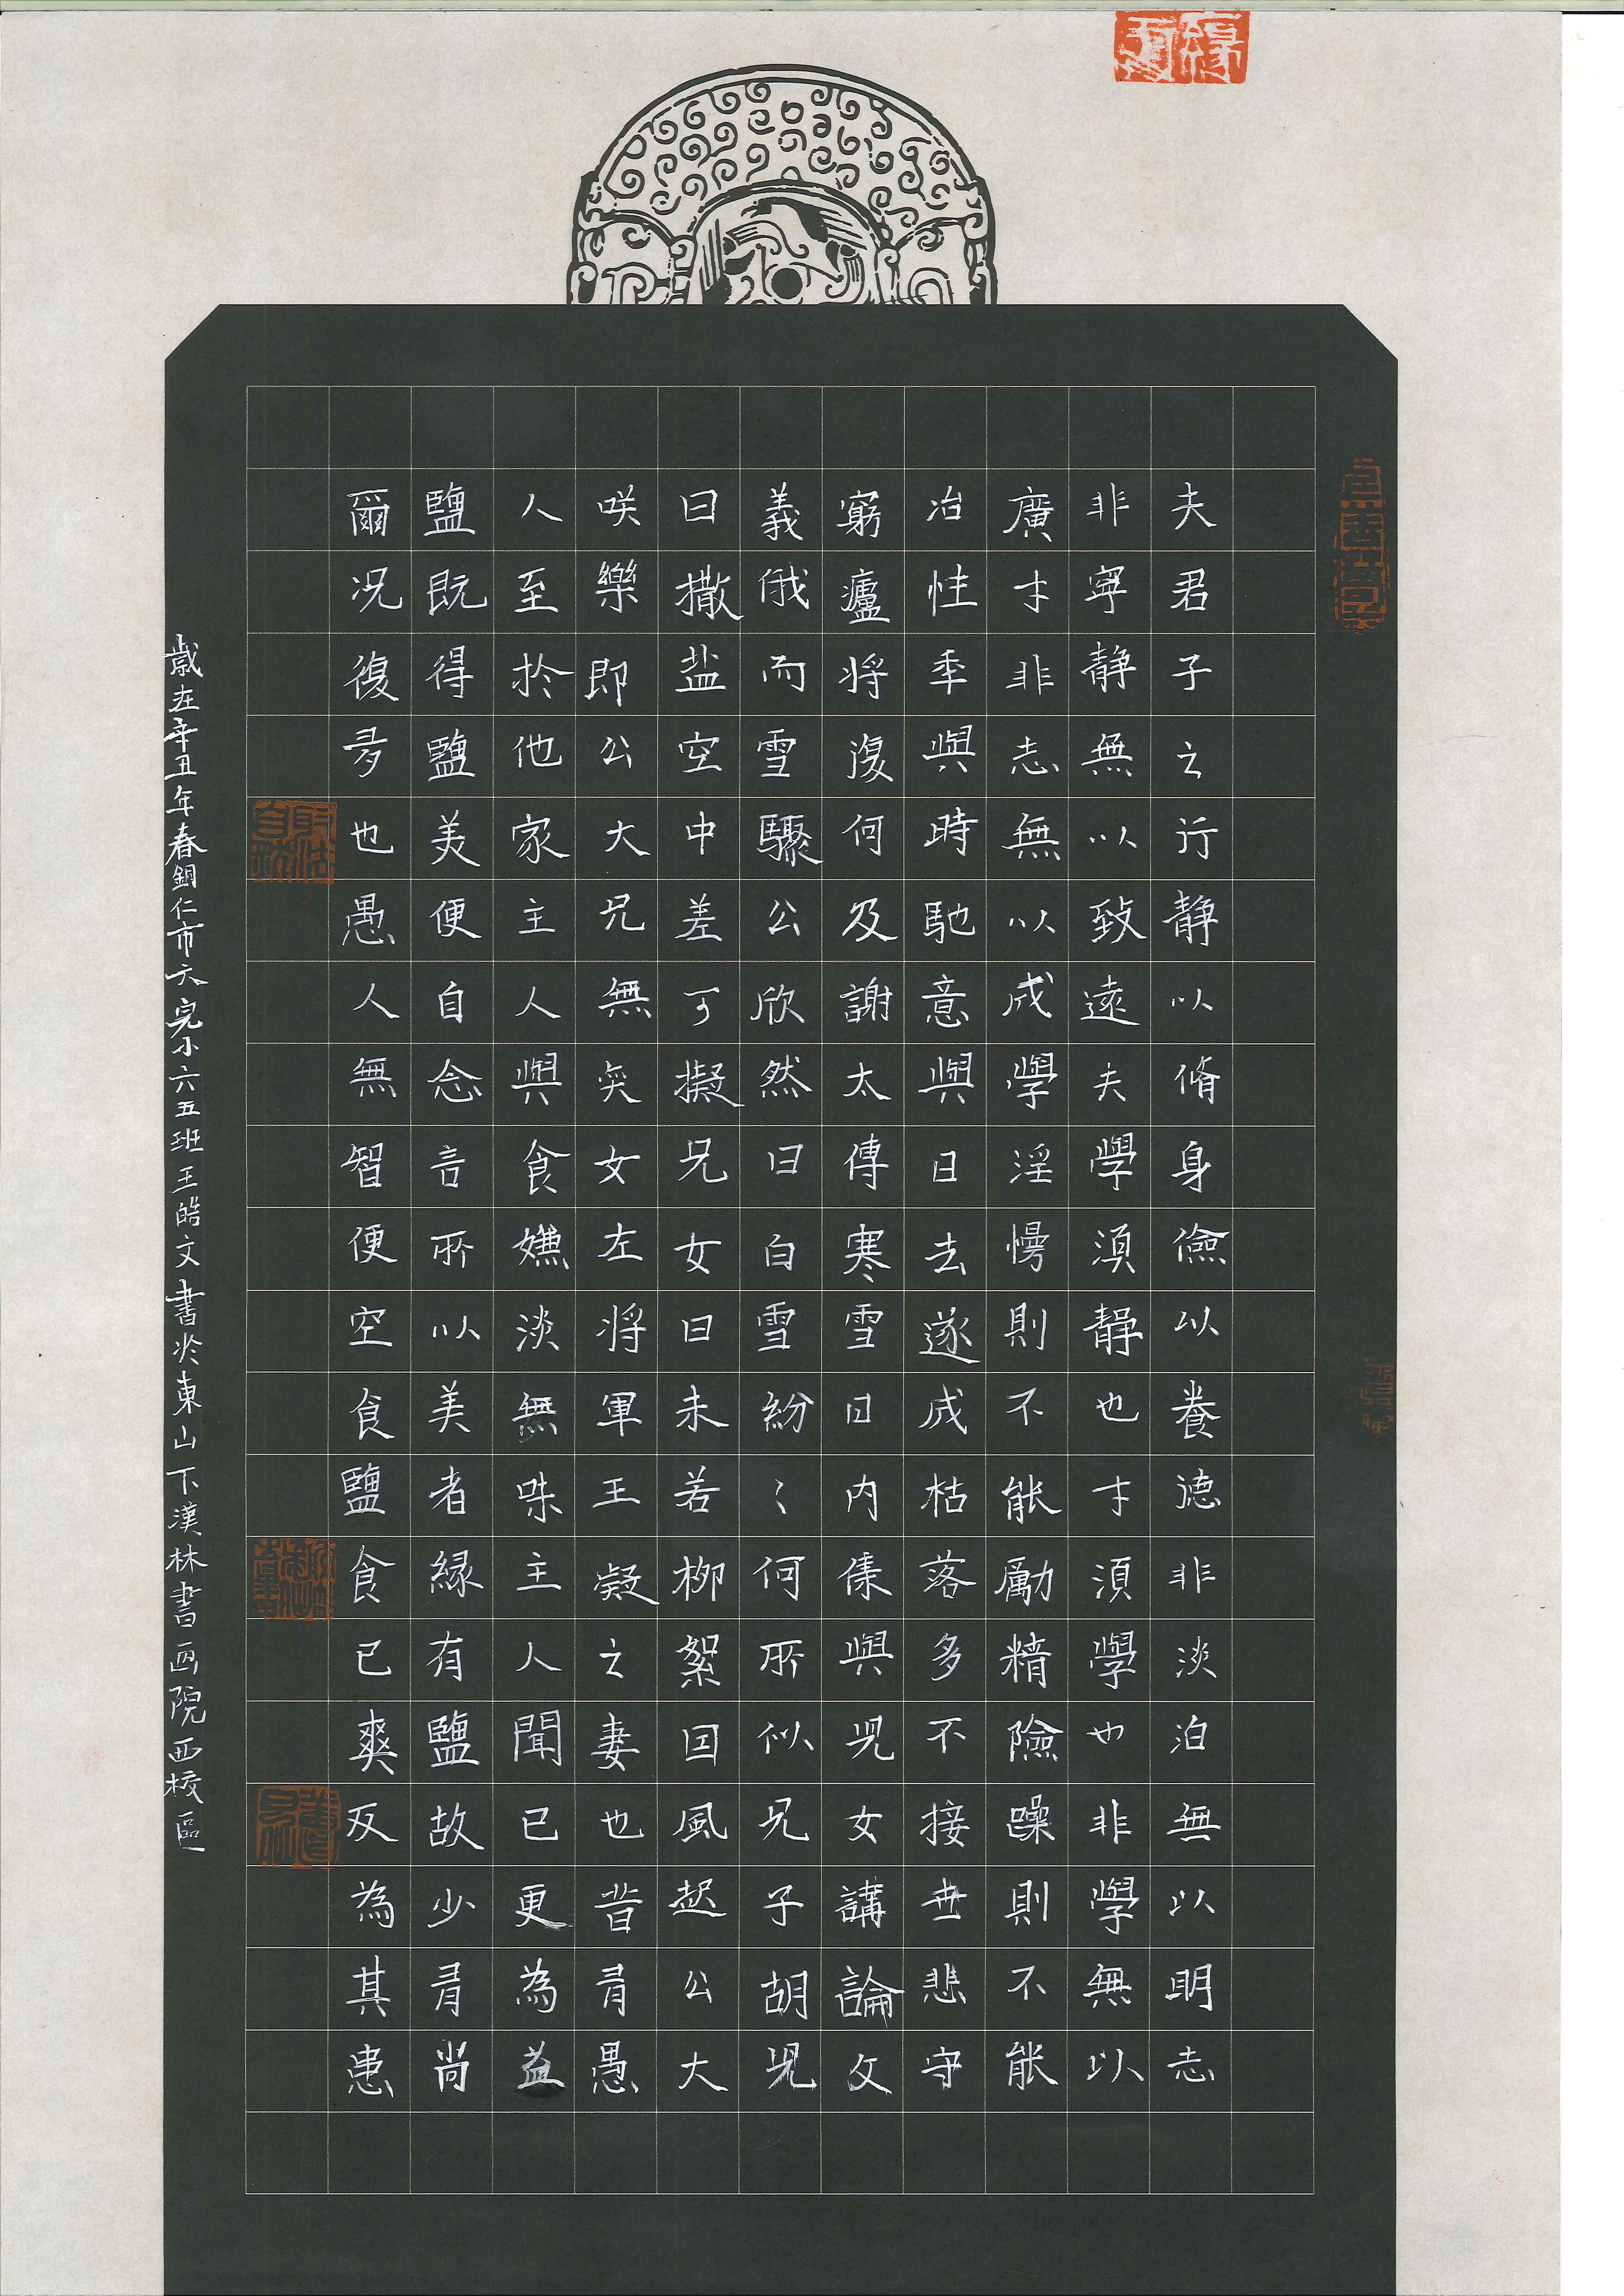 夫君子之行静以脩身儉以養德非淡泊無以明志
非寧静無以致遠夫學須静也才須學也非學無以
廣才非志無以成學淫慢則不能勵精險躁則不能
冶性年與時馳意與日去遂成枯落多不接世悲守
窮廬將復何及謝太傅寒雪日内集與兒女講論文
義俄而雪驟公欣然曰白雪紛〻何所似兄子胡兒
曰撒盐空中差可擬兄女曰未若柳絮因風起公大
咲樂即公大兄無奕女左将軍王凝之妻也昔有愚
人至於他家主人與食嫌淡無味主人聞已更為益
鹽既得鹽美便自念言所以美者緣有鹽故少有尚
爾况復多也愚人無智便空食鹽食已爽反為其患
歲在辛丑年春銅仁市六完小六五班王皓文書於東山下漢林書画院西校區